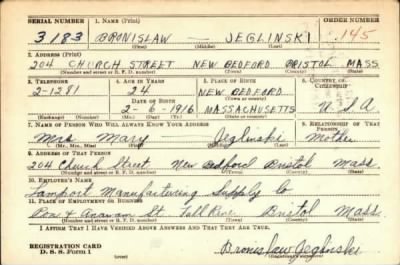 SERIAL NUMBER 1. NAME (Print) ORDER NUMBER
3183 BRONISLAW — JEGLINSKI 145
(First) (Middle) (Last)
2. ADDRESS (Print)
204 CHURCH STREET NEW BEDFORD BRISTOL MASS.
(Number and street or R. F. D. number) (Town) (County) (State)
3. TELEPHONE 4. AGE IN YEARS 5. PLACE OF BIRTH 6. COUNTRY OF CITIZENSHIP
2-1281 24 NEW BEDFORD
DATE OF BIRTH (Town or county)
2-6-1916 MASSACHUSETTS U.S.A
(Exchange) (Number) (Mo.) (Day) (Yr.) (State or country)
7. NAME OF PERSON WHO WILL ALWAYS KNOW YOUR ADDRESS 8. RELATIONSHIP OF THAT PERSON
Mrs Mary Jeglinski Mother
(Mr., Mrs., Miss) (First) (Middle) (Last)
9. ADDRESS OF THAT PERSON
204 Church Street New Bedford Bristol Mass
(Number and street or R. F. D. number) (Town) (County) (State)
10. EMPLOYER'S NAME
Lamport Manufacturing Supply Co
11. PLACE OF EMPLOYMENT OR BUSINESS
& St. Fall River Bristol Mass.
(Number and street or R. F. D. number) (Town) (County) (State)
I AFFIRM THAT I HAVE VERIFIED ABOVE ANSWERS AND THAT THEY ARE TRUE.
REGISTRATION CARD
D. S. S. Form 1 Bronislaw Jeglinski